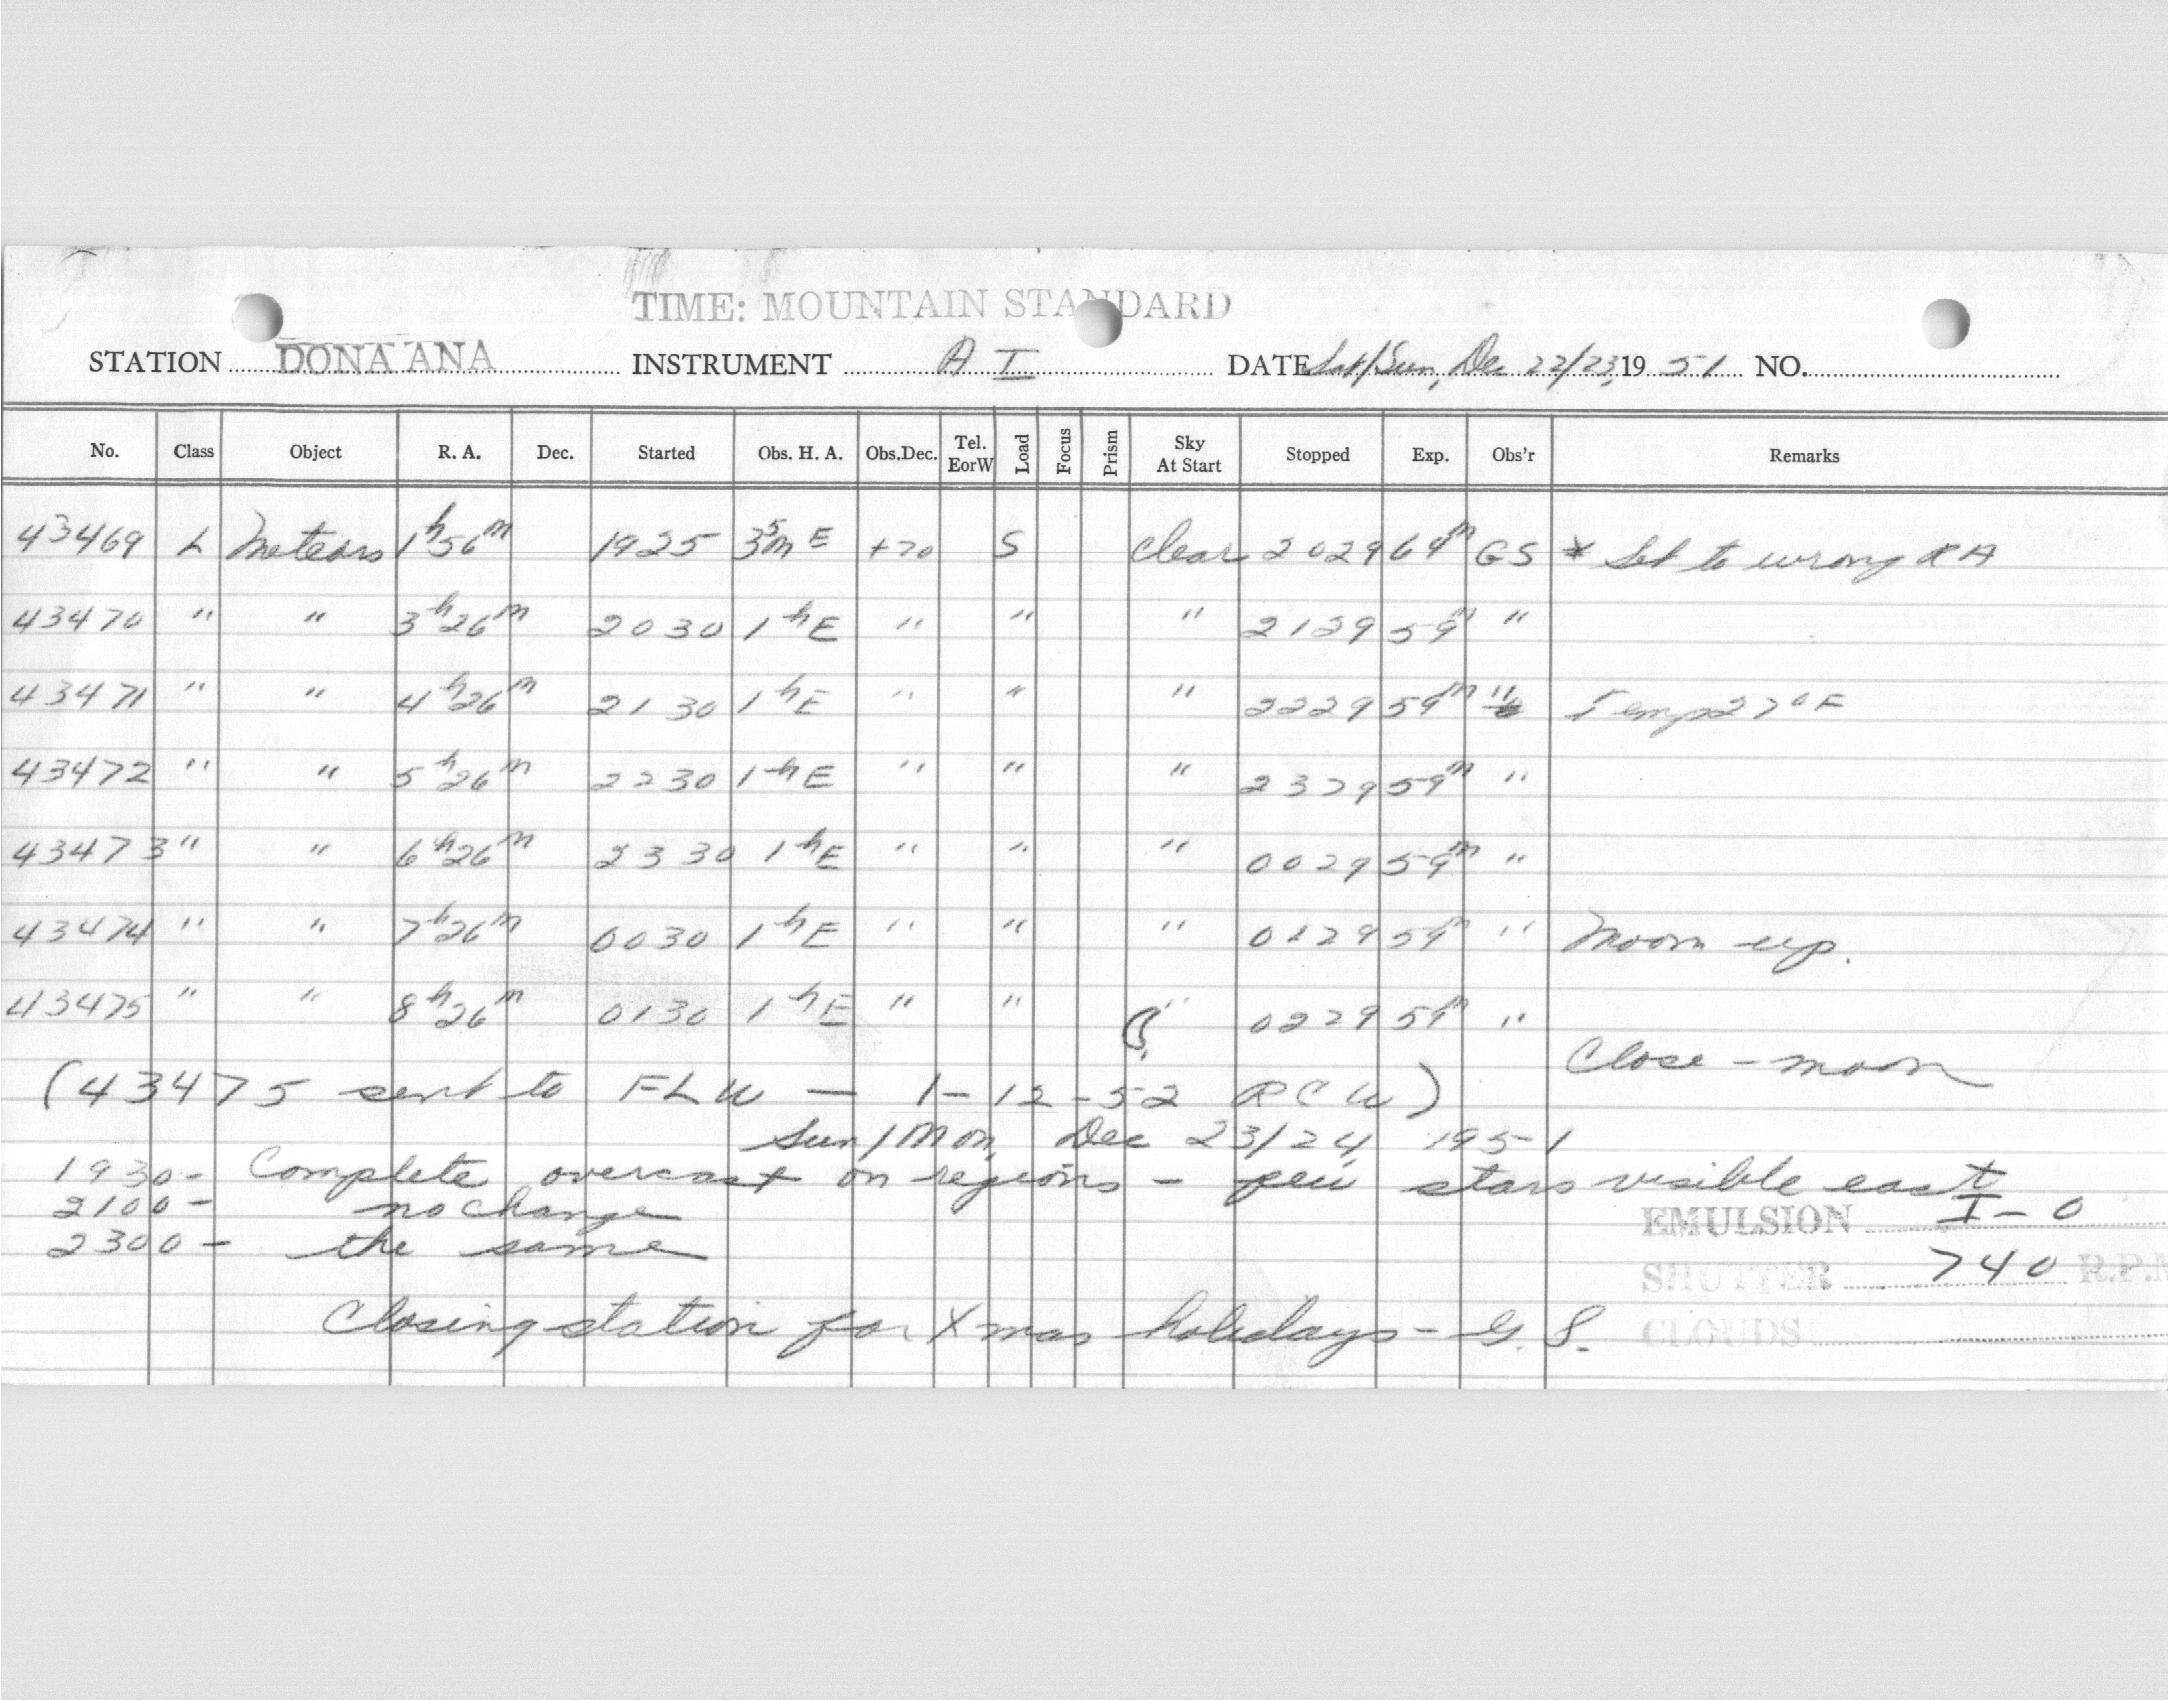 TIME: MOUNTAIN STANDARD
STATION DONA ANA INSTRUMENT A I DATE Sat/Sun, Dec 22/23, 19 51 NO.
No. Class Object R. A. Dec. Started Obs. H. A. Obs.Dec. Tel. EorW Load Focus Prism Sky At Start Stopped Exp. Obs'r Remarks
43469 L Meteors 1h56m 1925 35m E +70 S clear 2029 64m GS * Set to wrong RA
43470 " " 3h26m 2030 1hE " " " 2129 59m "
43471 " " 4h26m 2130 1hE " " " 2229 59m " Temp 27°F
43472 " " 5h26m 2230 1hE " " " 2329 59m "
43473 " " 6h26m 2330 1hE " " " 0029 59m "
43474 " " 7h26m 0030 1hE " " " 0129 59m " Moon up.
43475 " " 8h26m 0130 1hE " " " 0229 59m "
Close - moon
(43475 sent to FLW — 1-12-52 RCW)
Sun/Mon, Dec 23/24, 1951
1930- Complete overcast on regions - few stars visible east
2100- no change
2300- the same
EMULSION I-0
SHUTTER 740 R.P.M
CLOUDS
Closing station for Xmas holidays - G. S.